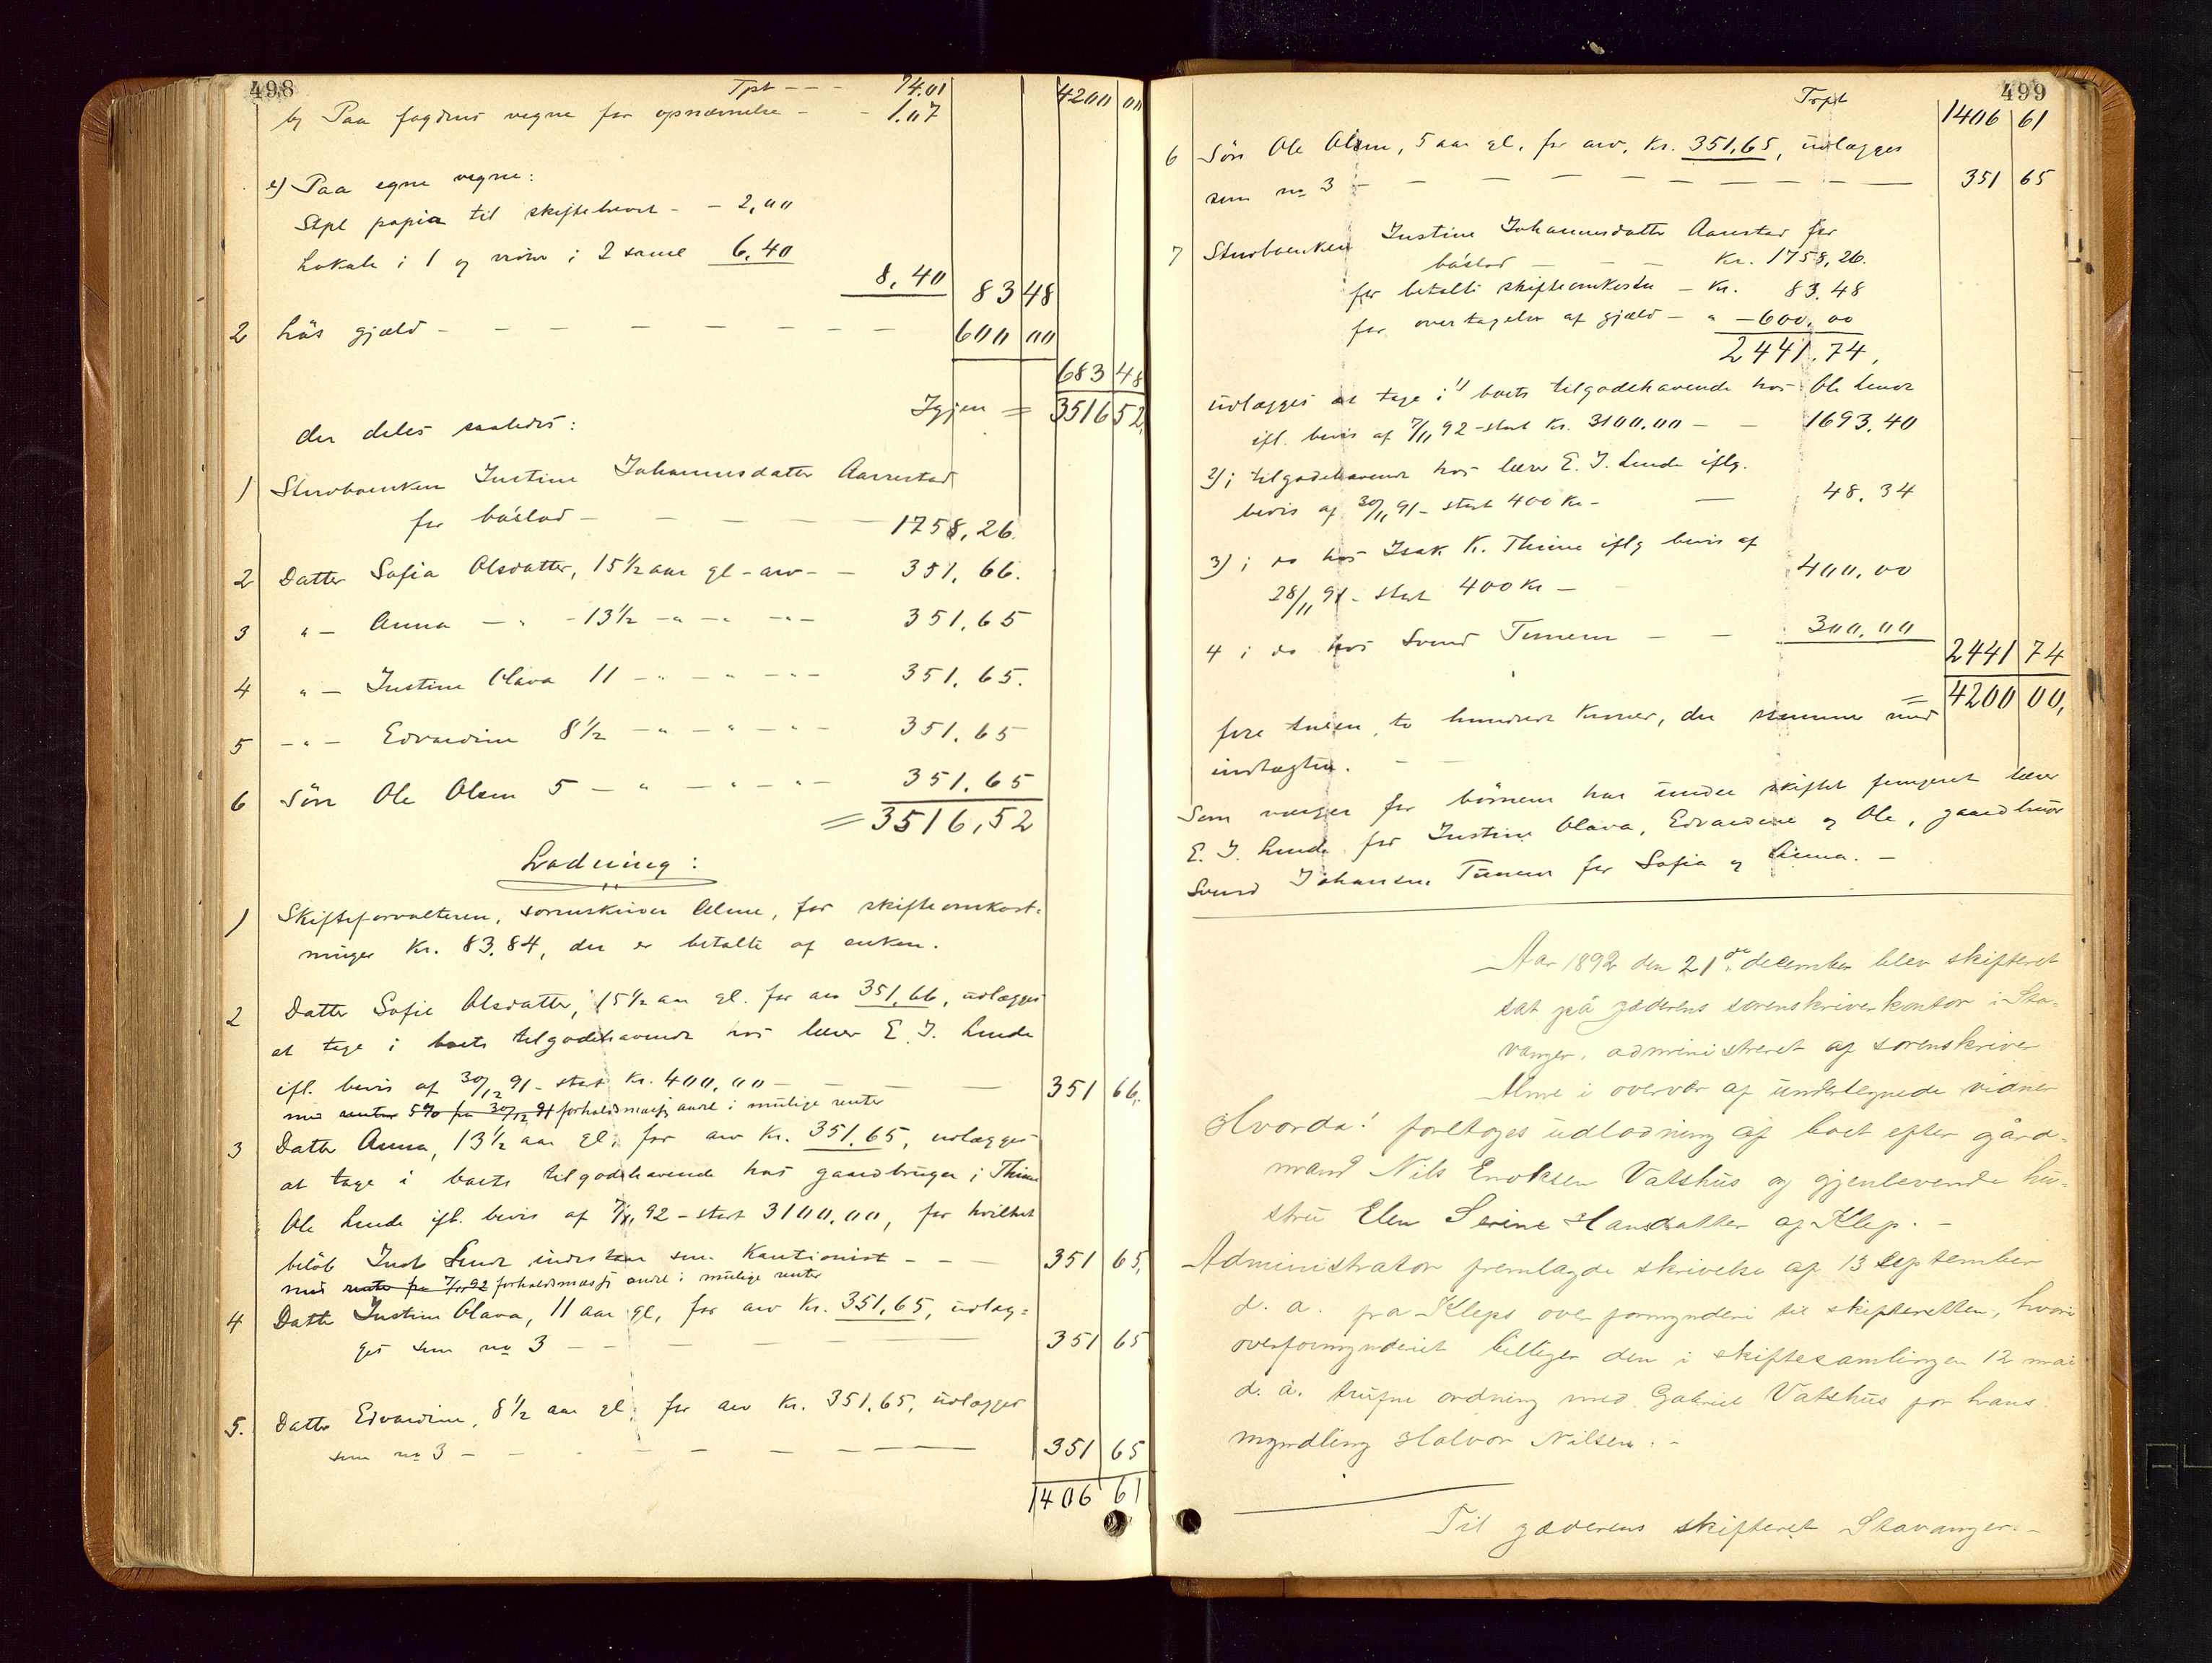 498
Tpt - - - 74.01 4200 00
b) Paa fogdens vegne for opnævnelse - - 1.07
c) Paa egne vegne:
Stpl papir til skiftebrevet - - 2,00
Lokale i 1 og vidner i 2 saml 6,40
8,40 83 48
2 Løs gjæld - - - - - - - 600 00
683 48
Igjen = 3516 52,
der deles saaledes:
1) Stervboenken Justine Johannesdatter Aarrestad
for boslod - - - - - 1758,26.
2 Datter Sofia Olsdatter, 15½ aar gl - arv - - 351,66.
3 " - Anna - " - 13½ - " - " - " - 351,65
4 " - Justine Olava 11 - " - " - " - 351,65.
5 - " - Edvardine 8½ - " - " - " - 351,65
6 Søn Ole Olsen 5 - " - " - " - 351,65
= 3516,52
Lodning:
1) Skifteforvalteren, sorenskriver Alme, for skifteomkost=
ninger Kr. 83,84, der er betalte af enken.
2 Datter Sofie Olsdatter, 15½ aar gl. for arv 351,66, udlægges
at tage i boets tilgodehavende hos lærer E. J. Lende
ifl. bevis af 30/12 91 - stort Kr. 400,00 - - - 351 66,
med renter 5% fra 30/12 91 forholdsmæssig andel i mulige renter
3 Datter Anna, 13½ aar gl, for arv Kr. 351,65, udlægges
at tage i boets tilgodehavende hos gaardbruger i Thime
Ole Lende ifl. bevis af 7/11 92 - stort 3100,00, for hvilket
beløb Jnst Lende indestaar som Kautionist - - - 351 65,
med renter fra 7/11 92 forholdsmæssig andel i mulige renter
4 Datter Justine Olava, 11 aar gl, for arv Kr. 351,65, udlæg=
ges som no 3 - - - - - 351 65
5. Datter Edvardine, 8½ aar gl, for arv Kr. 351,65, udlægges
som no 3 - - - - - - 351 65
1406 61
499
Trpt 1406 61
6 Søn Ole Olsen, 5 aar gl, for arv, Kr. 351,65, udlægges
som no 3 - - - - - - - - 351 65
7 Stervboenken Justine Johannesdatter Aarrestad for
boslod - - - Kr. 1758,26.
for betalte skifteomkostn - Kr. 83,48
for overtagelse af gjæld - " - 600,00
2441.74,
udlægges at tage i 1) boets tilgodehavende hos Ole Lende
ifl. bevis af 7/11 92 - stort Kr. 3100,00 - - 1693,40
2) i tilgodehavende hos lærer E. J. Lende iflg.
bevis af 30/11 91 - stort 400 Kr - - 48,34
3) i do hos Isak K. Thime iflg bevis af
28/11 91 - stort 400 Kr - 400,00
4 i do hos Svend Tunem - - 300,00
2441 74
= 4200 00,
fire tusen, to hundrede Kroner, der stemmer med
indtægten. - -
Som værger for børnene har under skiftet fungeret lærer
E. J. Lende for Justine Olava, Edvardine og Ole, gaardbruger
Svend Johansen Tunem for Sofia og Anna. -
Aar 1892 den 21de december blev skifteret
sat på Jæderens sorenskriverkontor i Sta=
vanger, administreret af sorenskriver
Alme i overvær af undertegnede vidner
Hvorda! foretoges udlodning af boet efter gård=
mand Nils Enoksen Vatshus og gjenlevende hu=
stru Elen Serine Hansdatter af Klep. -
Administrator fremlagde skrivelse af 13 september
d. a. fra Kleps overformynderi til skifteretten, hvori
overformynderiet billiger den i skiftesamlingen 12 mai
d. å. trufne ordning med Gabriel Vatshus for hans
myndling Halvor Nilsen. -
Til Jæderens skifteret Stavanger. -